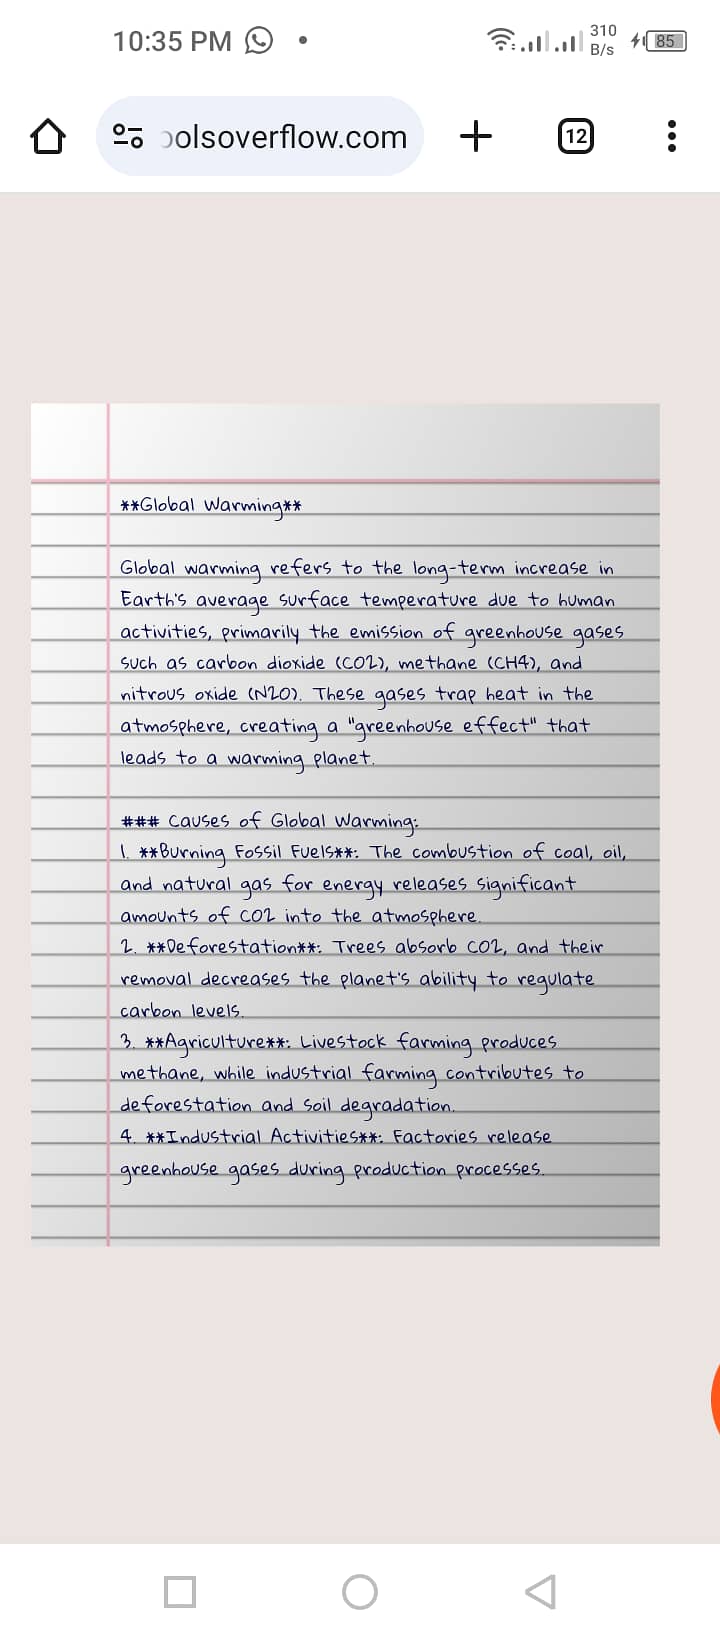 10:35 PM
310
B/s
85
olsoverflow.com
12
**Global Warming**
Global warming refers to the long-term increase in
Earth's average surface temperature due to human
activities, primarily the emission of greenhouse gases
such as carbon dioxide (CO2), methane (CH4), and
nitrous oxide (N2O). These gases trap heat in the
atmosphere, creating a "greenhouse effect" that
leads to a warming planet.
### Causes of Global Warming:
1. **Burning Fossil Fuels**: The combustion of coal, oil,
and natural gas for energy releases significant
amounts of CO2 into the atmosphere.
2. **Deforestation**: Trees absorb CO2, and their
removal decreases the planet's ability to regulate
carbon levels.
3. **Agriculture**: Livestock farming produces
methane, while industrial farming contributes to
deforestation and soil degradation.
4. **Industrial Activities**: Factories release
greenhouse gases during production processes.